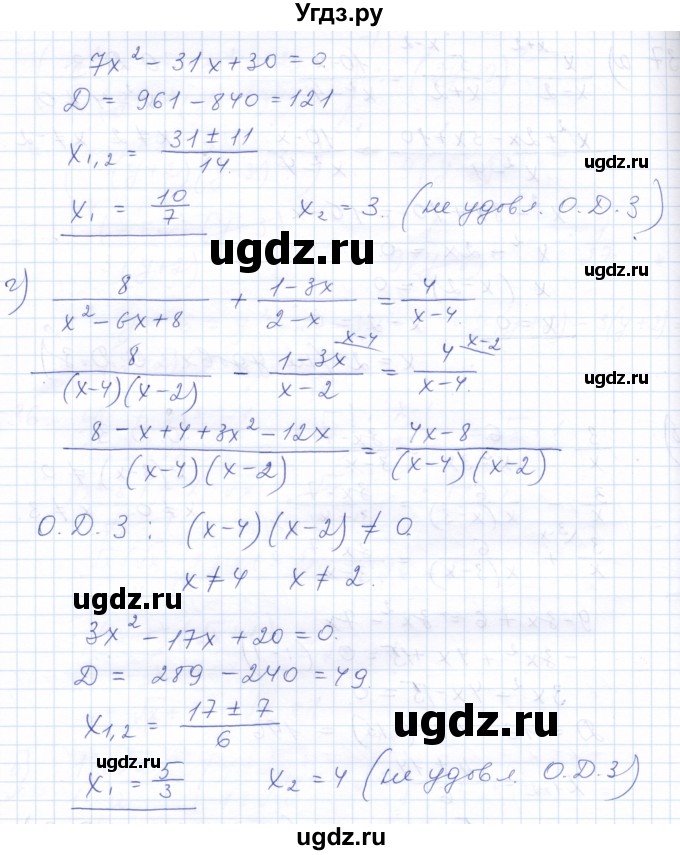 Угдз.ру
7x² - 31x + 30 = 0.
D = 961 - 840 = 121
x₁,₂ = (31 ± 11)/14.
ugdz.ru
x₁ = 10/7 x₂ = 3. (не удовл. О.Д.З.)
ugdz.ru
ugdz.ru
г) 8/(x² - 6x + 8) + (1 - 3x)/(2 - x) = 4/(x - 4).
8/((x-4)(x-2)) - (1 - 3x)/(x - 2) ^(x-4) = 4/(x-4) ^(x-2)
ugdz.ru
(8 - x + 4 + 3x² - 12x)/((x-4)(x-2)) = (4x - 8)/((x-4)(x-2))
О.Д.З : (x-4)(x-2) ≠ 0.
x ≠ 4 x ≠ 2.
ugdz.ru
3x² - 17x + 20 = 0.
D = 289 - 240 = 49.
x₁,₂ = (17 ± 7)/6
ugdz.ru
ugdz.ru
x₁ = 5/3 x₂ = 4 (не удовл. О.Д.З)
ugdz.ru
ugdz.ru